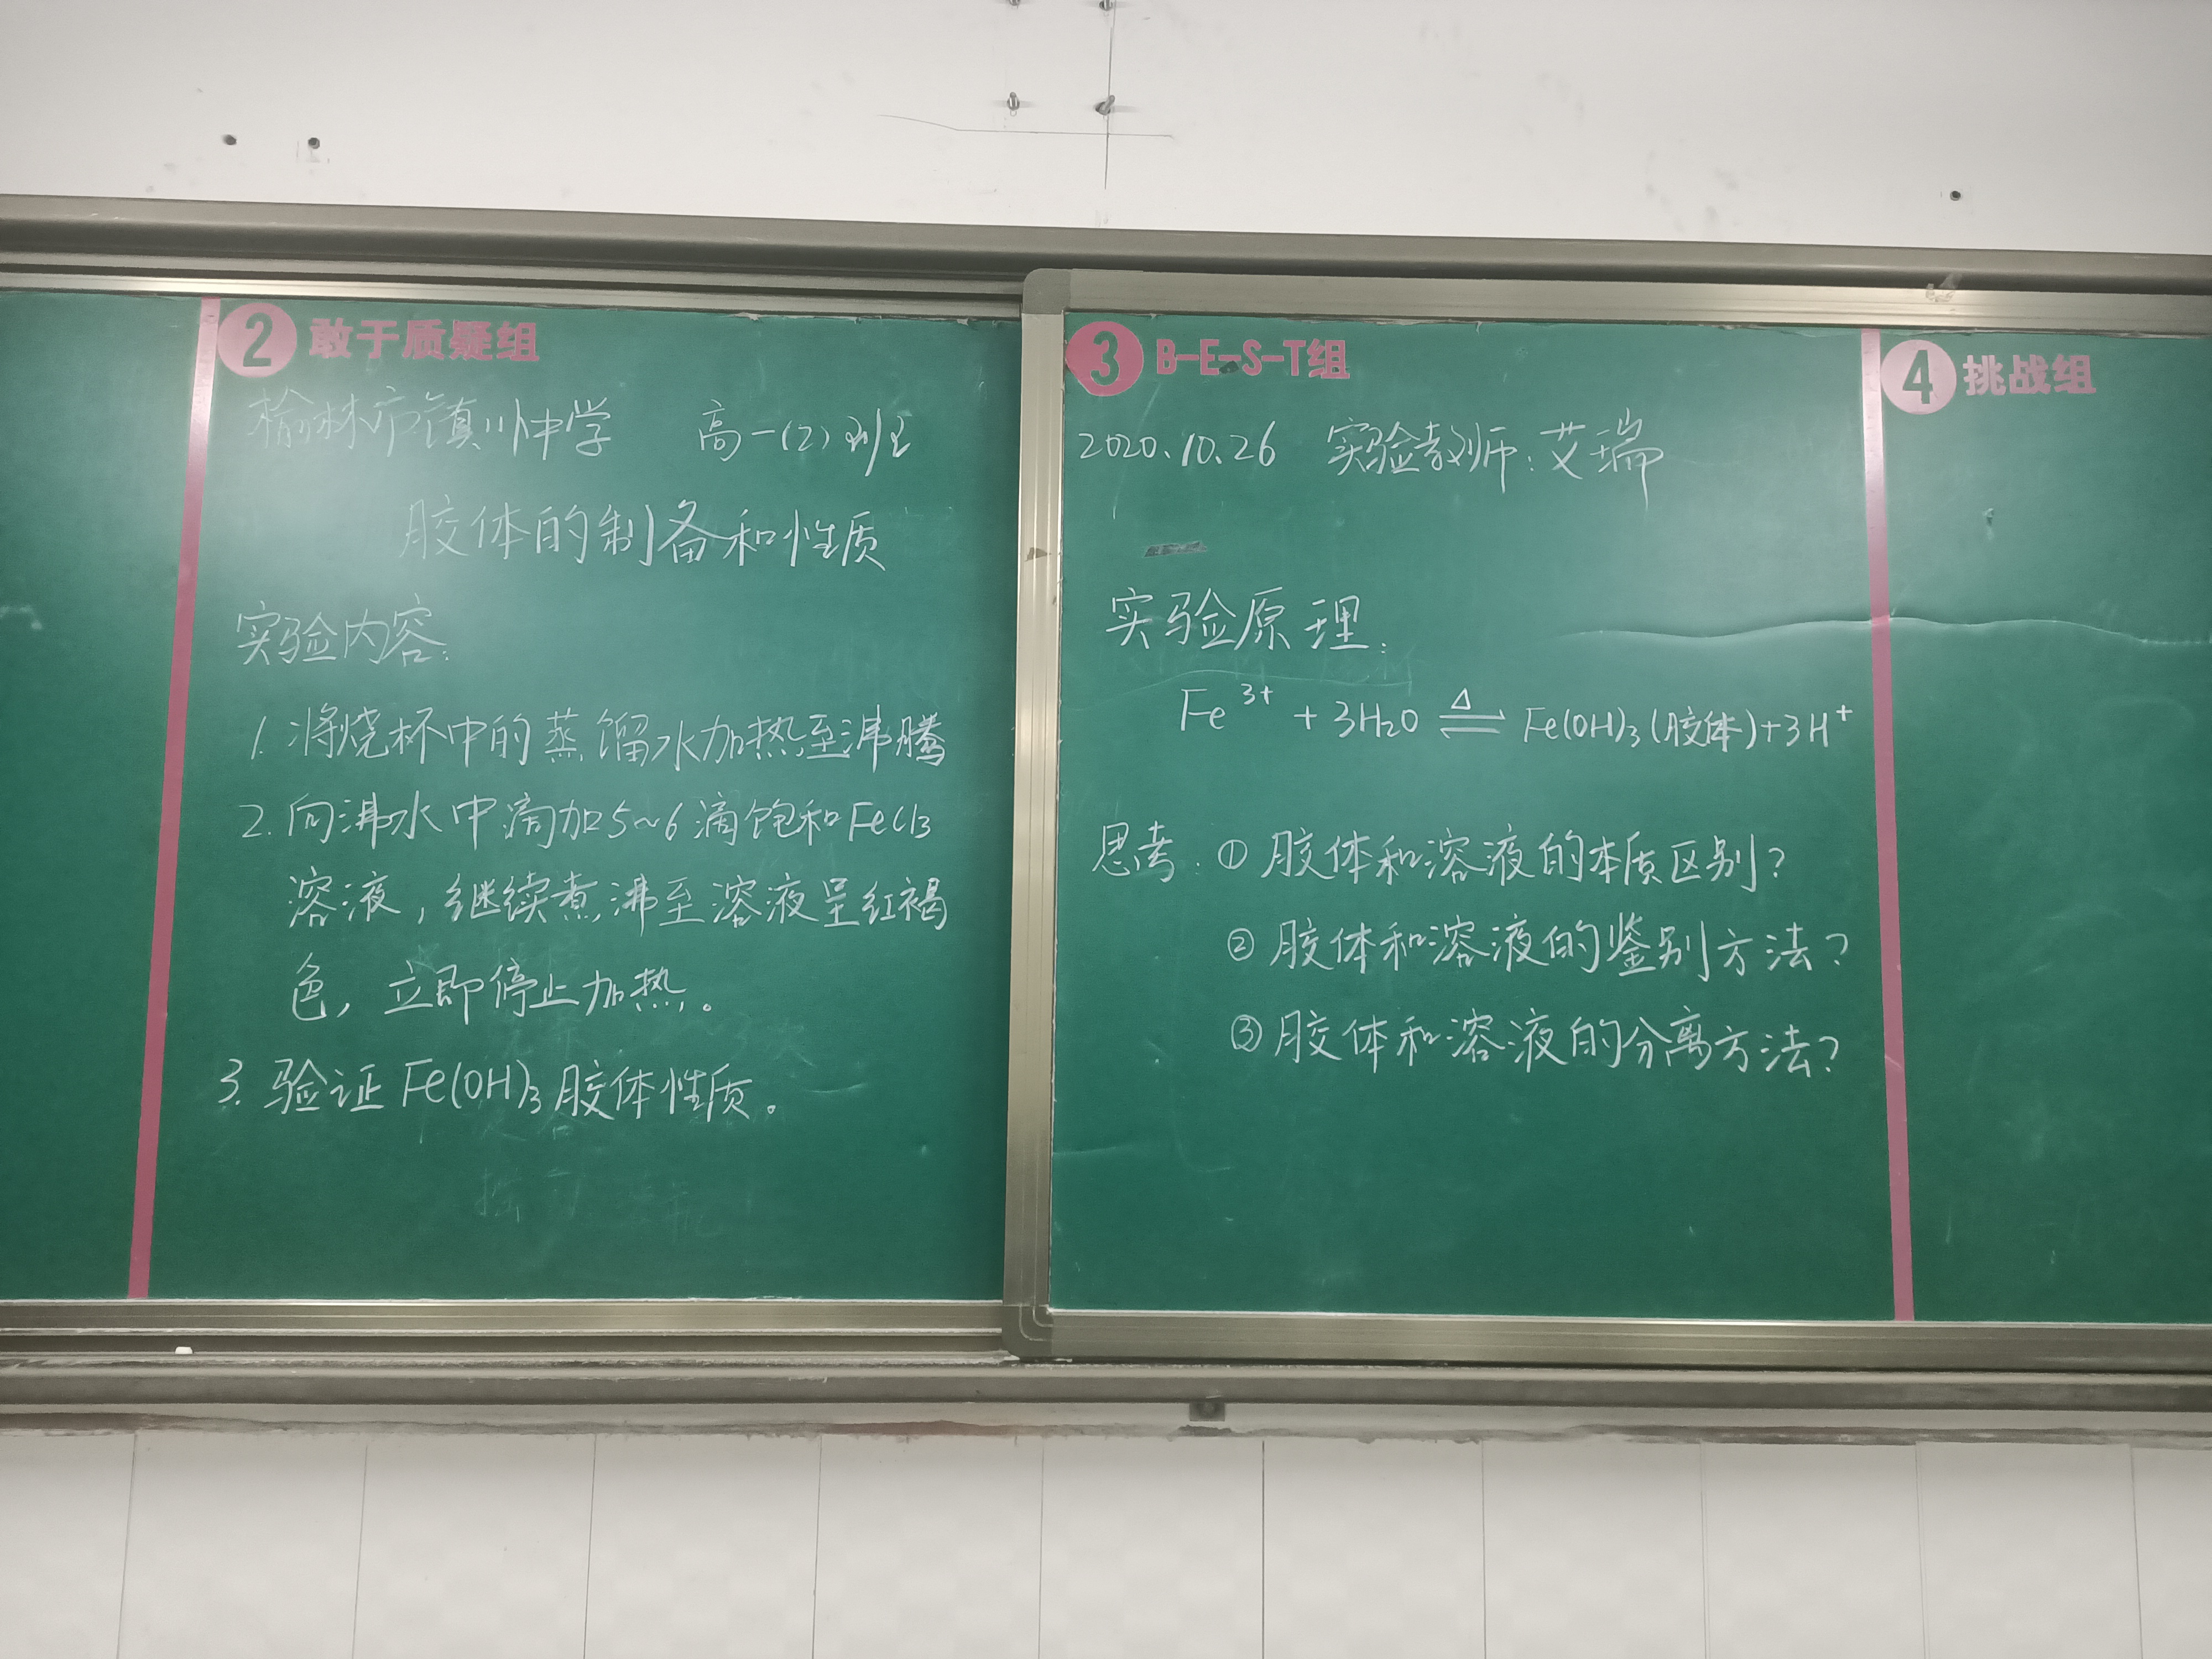 2 敢于质疑组
榆林市镇川中学 高一(2)班
胶体的制备和性质
实验内容:
1. 将烧杯中的蒸馏水加热至沸腾
2. 向沸水中滴加5~6滴饱和FeCl3
溶液,继续煮沸至溶液呈红褐
色,立即停止加热。
3. 验证Fe(OH)3胶体性质。
3 B-E-S-T组
2020.10.26 实验教师:艾瑞
实验原理:
Fe³⁺ + 3H2O ⇌(△) Fe(OH)3(胶体)+3H⁺
思考:①胶体和溶液的本质区别?
②胶体和溶液的鉴别方法?
③胶体和溶液的分离方法?
4 挑战组